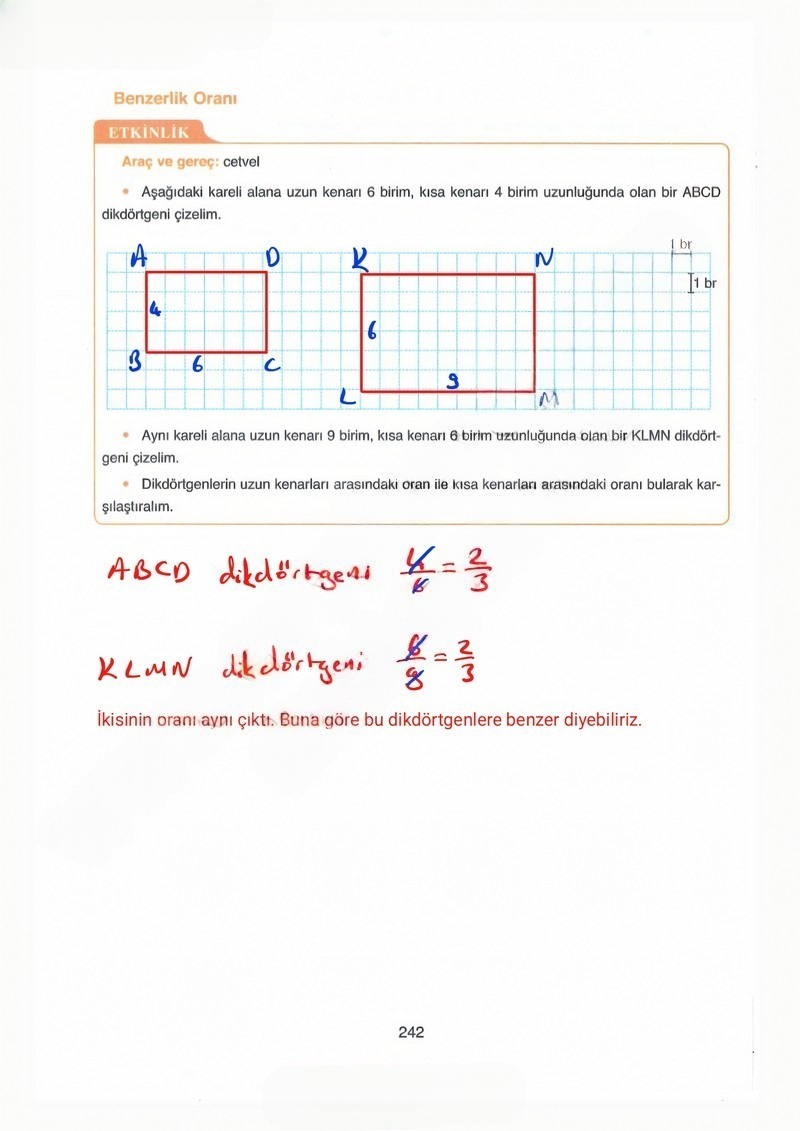 Benzerlik Oranı
ETKİNLİK
Araç ve gereç: cetvel
• Aşağıdaki kareli alana uzun kenarı 6 birim, kısa kenarı 4 birim uzunluğunda olan bir ABCD
dikdörtgeni çizelim.
1 br
A D K N
1 br
4
6
B 6 C
9
L M
• Aynı kareli alana uzun kenarı 9 birim, kısa kenarı 6 birim uzunluğunda olan bir KLMN dikdört-
geni çizelim.
• Dikdörtgenlerin uzun kenarları arasındaki oran ile kısa kenarları arasındaki oranı bularak kar-
şılaştıralım.
ABCD dikdörtgeni 4/6 = 2/3
KLMN dikdörtgeni 6/9 = 2/3
İkisinin oranı aynı çıktı. Buna göre bu dikdörtgenlere benzer diyebiliriz.
242